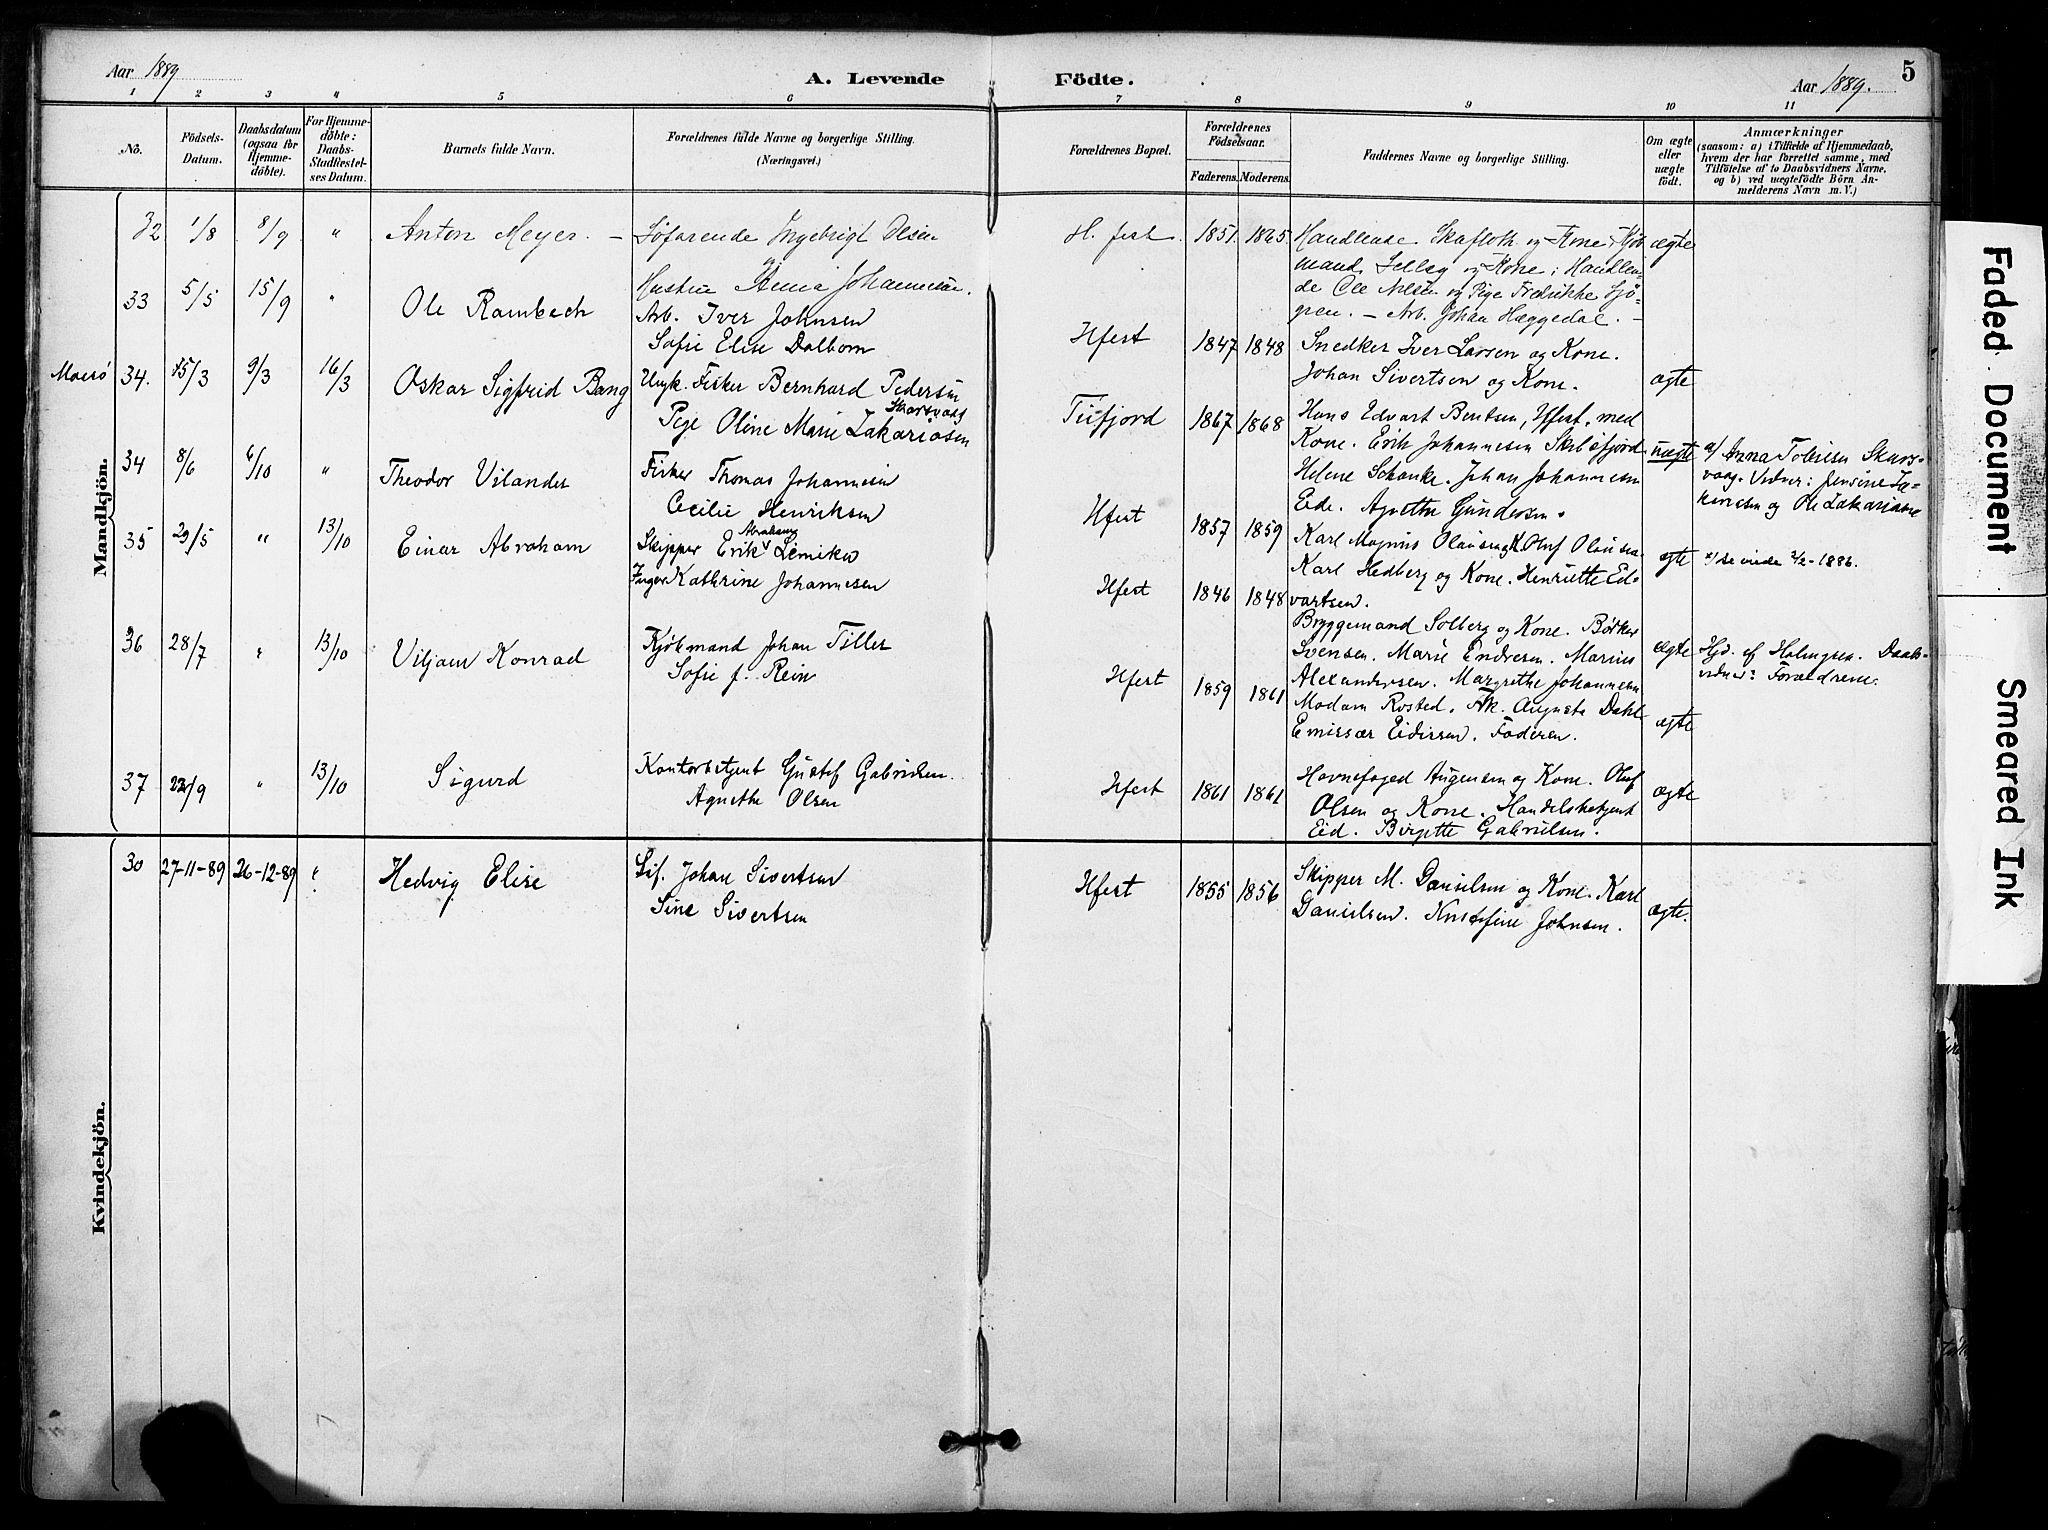 Aar 1889
A. Levende Födte.
Aar 1889.
5
1 2 3 4 5 6 7 8 9 10 11
No.
Födsels-
Datum.
Daabsdatum
(ogsaa for
Hjemme-
döbte).
For Hjemme-
döbte:
Daabs-
Stadfæstel-
ses Datum.
Barnets fulde Navn.
Forældrenes fulde Navne og borgerlige Stilling.
(Næringsvei.)
Forældrenes Bopæl.
Forældrenes
Födselsaar.
Faderens. Moderens.
Faddernes Navne og borgerlige Stilling.
Om ægte
eller
uægte
født.
Anmærkninger
(saasom: a) i Tilfælde af Hjemmedaab,
hvem der har forrettet samme, med
Tilföielse af to Daabsvidners Navne,
og b) ved uægtefödte Börn An-
melderens Navn m. V.)
Mandkjön.
32 1/8 8/9 " Anton Meyer. – Söfarende Ingebrigt Olsen
Hustru Anna Johannesen.
H.fest. 1851. 1865.
Handlende Skaftoth og Kone. Kjöb
mand og Kone: Handlen-
de Ole Nilsen og Pige Fredrikke Sjö-
gren. – Arb. Johan Hæggedal. –
ægte
33 5/5 15/9 " Ole Rambech
Arb. Iver Johnsen
Sofie Elise Dalhom
Hfest 1847 1848
Snedker Iver Larsen og Kone.
Johan Sivertsen og Kone.
ægte
Maasö 34. 15/3 9/3 16/3 Oskar Sigfrid Bang
Ungk. Fisker Bernhard Pedersen
Skarsvaag
Pige Oline Marie Zakariasen
Tufjord 1867 1868
Hans Edvart Bentsen, Hfest, med
Kone. Erik Johannesen
Helene Schanke. Johan Johannesen
Eide. Agnethe Gundersen.
uægte
a/ Anna Tobiesen Skars-
vaag. Vidner: Jensine Za-
kariasen og Ole Zakariasen
34 8/6 6/10 " Theodor Vilander
Fisker Thomas Johannesen
Cecilie Henriksen
Hfest 1857 1859
Karl Magnus Olausen, K. Oluf Olausen
Karl Hedberg og Kone. Henriette Ed-
vartsen.
ægte
35 29/5 " 13/10 Einar Abraham
Abraham
Skipper Erik Limika
Inger Kathrine Johannesen
Hfest 1846 1848
Bryggemand Solberg og Kone. Bödker
Svensen. Marie Endresen. Marius
Alexandersen. Margrethe Johannesen
ægte
Hjd. af Holmgren. Daabs-
vidner: Forældrene.
36 28/7 " 13/10 Viljam Konrad
Kjöbmand Johan Tiller
Sofie f. Rein
Hfest 1859 1861
Madam Rosted. Frk. Augusta Dahl
Emissær Eidissen. Faderen.
ægte
37 22/9 " 13/10 Sigurd
Kontorbetjent Gustaf Gabrielsen.
Agnethe Olsen
Hfest 1861 1861
Havnefoged Augensen og Kone. Oluf
Olsen og Kone. Handelsbetjent
Eid. Birgitte Gabrielsen.
ægte
Kvindekjön.
30 27-11-89 26-12-89 " Hedvig Elise
Sif. Johan Sivertsen
Sine Sivertsen
Hfest 1855 1856
Skipper M. Danielsen og Kone. Karl
Danielsen. Kristofine Johnsen.
ægte.
Faded Document
Smeared Ink